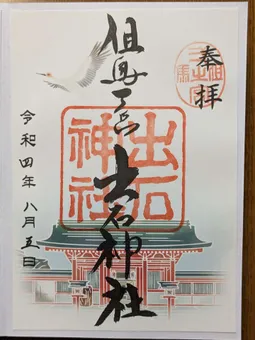 奉拝
但馬一宮 出石神社
出石神社
令和四年 八月五日